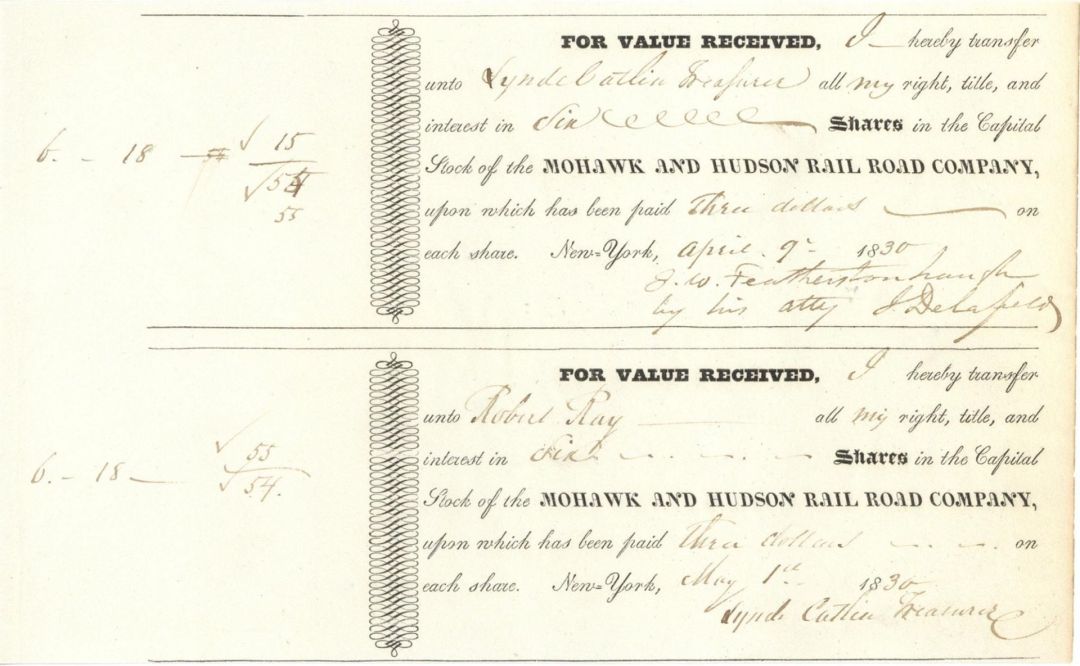 FOR VALUE RECEIVED, I hereby transfer
unto Lynde Catlin Treasurer all my right, title, and
interest in Six Shares in the Capital
6. - 18 - 54 √ 15
Stock of the MOHAWK AND HUDSON RAIL ROAD COMPANY,
√54
upon which has been paid Three dollars on
55
each share. New=York, April 9th 1830
J. W. Featherstonhaugh
by his atty J. Delafield
FOR VALUE RECEIVED, I hereby transfer
unto Robert Ray all my right, title, and
interest in Six Shares in the Capital
6. - 18 - √ 55
√ 54.
Stock of the MOHAWK AND HUDSON RAIL ROAD COMPANY,
upon which has been paid Three dollars on
each share. New=York, May 1st 1830
Lynde Catlin Treasurer